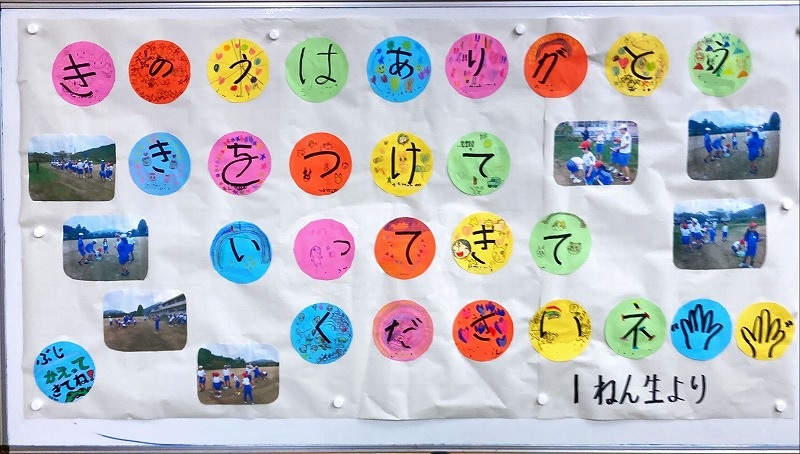 きのうはありがとう
きをつけて
いってきて
くださいネ
ぶじ
かえって
きてね!
1ねん生より